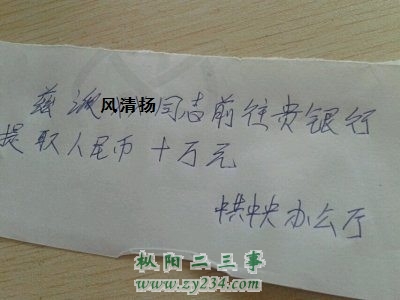 兹派风清扬同志前往贵银行
提取人民币十万元
中共中央办公厅
枞阳二三事
www.zy234.com